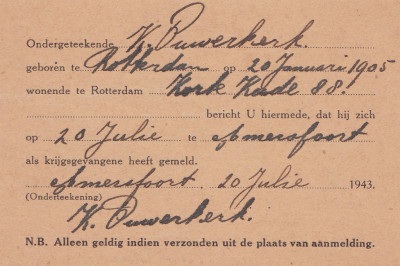 Ondergeteekende K. Ouwerkerk.
geboren te Rotterdam op 20 Januari 1905
wonende te Rotterdam Kork Kade 88.
bericht U hiermede, dat hij zich
op 20 Julie te Amersfoort
als krijgsgevangene heeft gemeld.
Amersfoort, 20 Julie 1943.
(Onderteekening)
K. Ouwerkerk.
N.B. Alleen geldig indien verzonden uit de plaats van aanmelding.